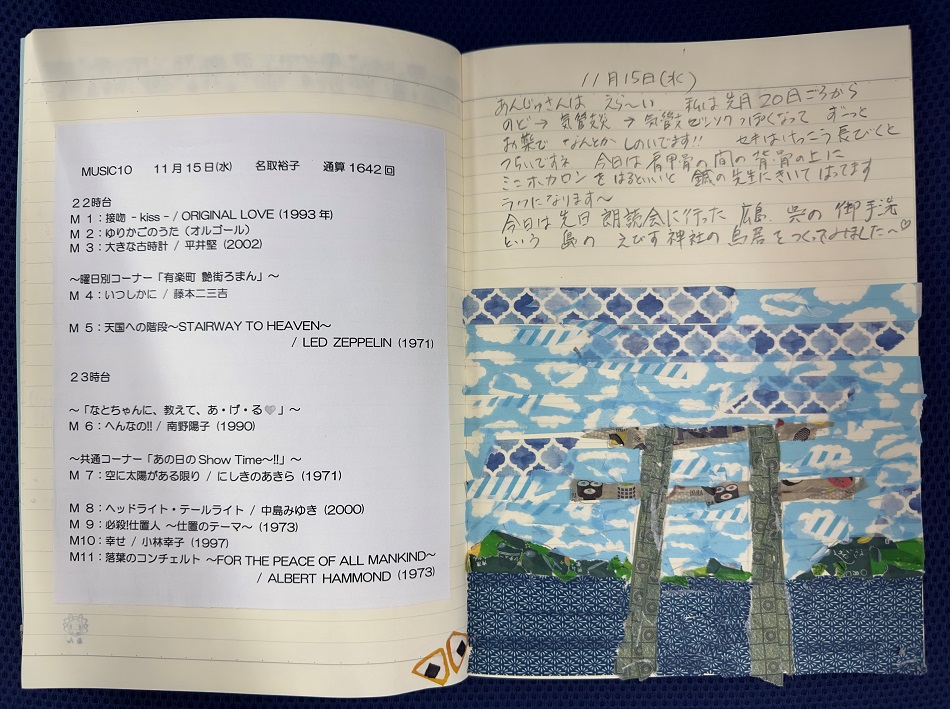 MUSIC10 11月15日(水) 名取裕子 通算1642回
22時台
M 1：接吻 - kiss - / ORIGINAL LOVE (1993年)
M 2：ゆりかごのうた (オルゴール)
M 3：大きな古時計 / 平井堅 (2002)
～曜日別コーナー「有楽町 艶街ろまん」～
M 4：いつしかに / 藤本二三吉
M 5：天国への階段～STAIRWAY TO HEAVEN～
/ LED ZEPPELIN (1971)
23時台
～「なとちゃんに、教えて、あ・げ・る🩶」～
M 6：へんなの!! / 南野陽子 (1990)
～共通コーナー「あの日のShow Time～!!」～
M 7：空に太陽がある限り / にしきのあきら (1971)
M 8：ヘッドライト・テールライト / 中島みゆき (2000)
M 9：必殺!仕置人 ～仕置のテーマ～ (1973)
M10：幸せ / 小林幸子 (1997)
M11：落葉のコンチェルト ～FOR THE PEACE OF ALL MANKIND～
/ ALBERT HAMMOND (1973)
11月15日(水)
あんじゅさんは えら～い 私は先月20日ごろから
のど→ 気管支炎 → 気管支ゼンソクっぽくなって ずーっと
お薬で なんとか しのいでます!! セキはけっこう長びくと
つらいですネ 今日は肩甲骨の間の背骨の上に
ミニホカロンをはるといいと 鍼の先生にきいてはってます
ラクになります～
今日は先日朗読会に行った 広島 呉の御手洗
という 島の えびす神社の鳥居をつくってみました～♡